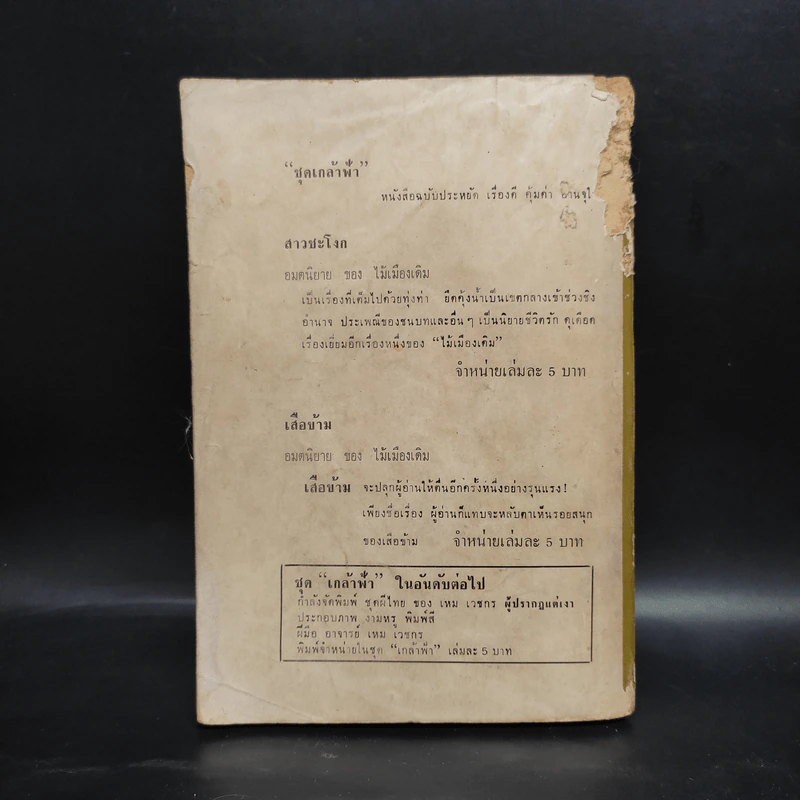 “ชุดเกล้าฟ้า”
หนังสือฉบับประหยัด เรื่องดี คุ้มค่า อ่านจุใ
สาวชะโงก
อมตนิยาย ของ ไม้เมืองเดิม
เป็นเรื่องที่เต็มไปด้วยทุ่งท่า ยึดคุ้งน้ำเป็นเขตกลางเข้าช่วงชิง
อำนาจ ประเพณีของชนบทและอื่น ๆ เป็นนิยายชีวิตรัก ดุเดือด
เรื่องเยี่ยมอีกเรื่องหนึ่งของ “ไม้เมืองเดิม”
จำหน่ายเล่มละ 5 บาท
เสือข้าม
อมตนิยาย ของ ไม้เมืองเดิม
เสือข้าม จะปลุกผู้อ่านให้ตื่นอีกครั้งหนึ่งอย่างรุนแรง!
เพียงชื่อเรื่อง ผู้อ่านก็แทบจะหลับตาเห็นรอยสนุก
ของเสือข้าม จำหน่ายเล่มละ 5 บาท
ชุด “เกล้าฟ้า” ในอันดับต่อไป
กำลังจัดพิมพ์ ชุดผีไทย ของ เหม เวชกร ผู้ปรากฏแต่เงา
ประกอบภาพ งามหรู พิมพ์สี
ฝีมือ อาจารย์ เหม เวชกร
พิมพ์จำหน่ายในชุด “เกล้าฟ้า” เล่มละ 5 บาท